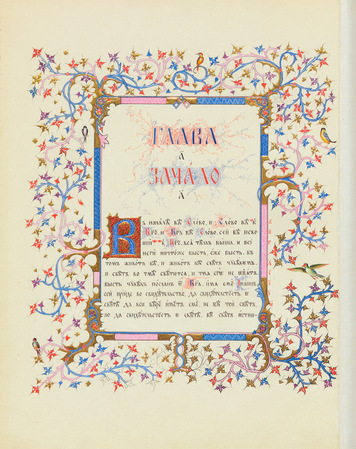 ГЛАВА
А
ЗАЧАЛО
А
Въ началѣ бѣ Слово, и Слово бѣ къ
Бг҃ꙋ, и Бг҃ъ бѣ Слово. Сей бѣ искони
къ Бг҃ꙋ. Вся тѣмъ быша, и без
негѡ ничтоже бысть, еже бысть. Въ
томъ животъ бѣ, и животъ бѣ свѣтъ
и свѣтъ во тмѣ свѣтится, и тма егѡ не ѡбѧтъ
бысть посланъ ѿ Бг҃а, имѧ емꙋ
сей прїиде во свидѣтельство, да свидѣтельствꙋетъ ѡ
свѣтѣ, да вси вѣрꙋ имꙋтъ емꙋ. Не бѣ той свѣтъ,
но да свидѣтельствꙋетъ ѡ свѣтѣ. Бѣ свѣтъ